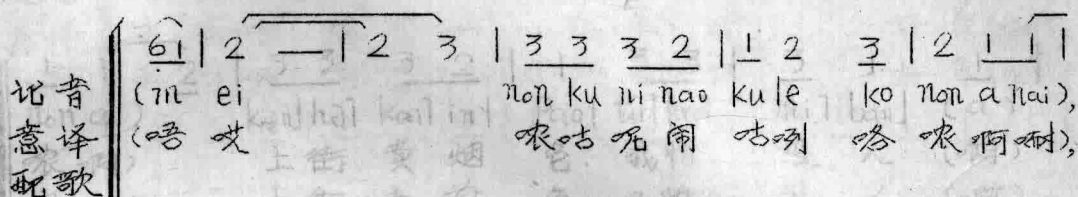 6 1 | 2 — | 2 3 | 3 3 3 2 | 1 2 3 | 2 1 1 |
记音 (m ei non ku ni nao ku le ko non a nai),
意译 (唔 哎 哝咕 呢 闹 咕咧 咯 哝 啊 嗬),
配歌